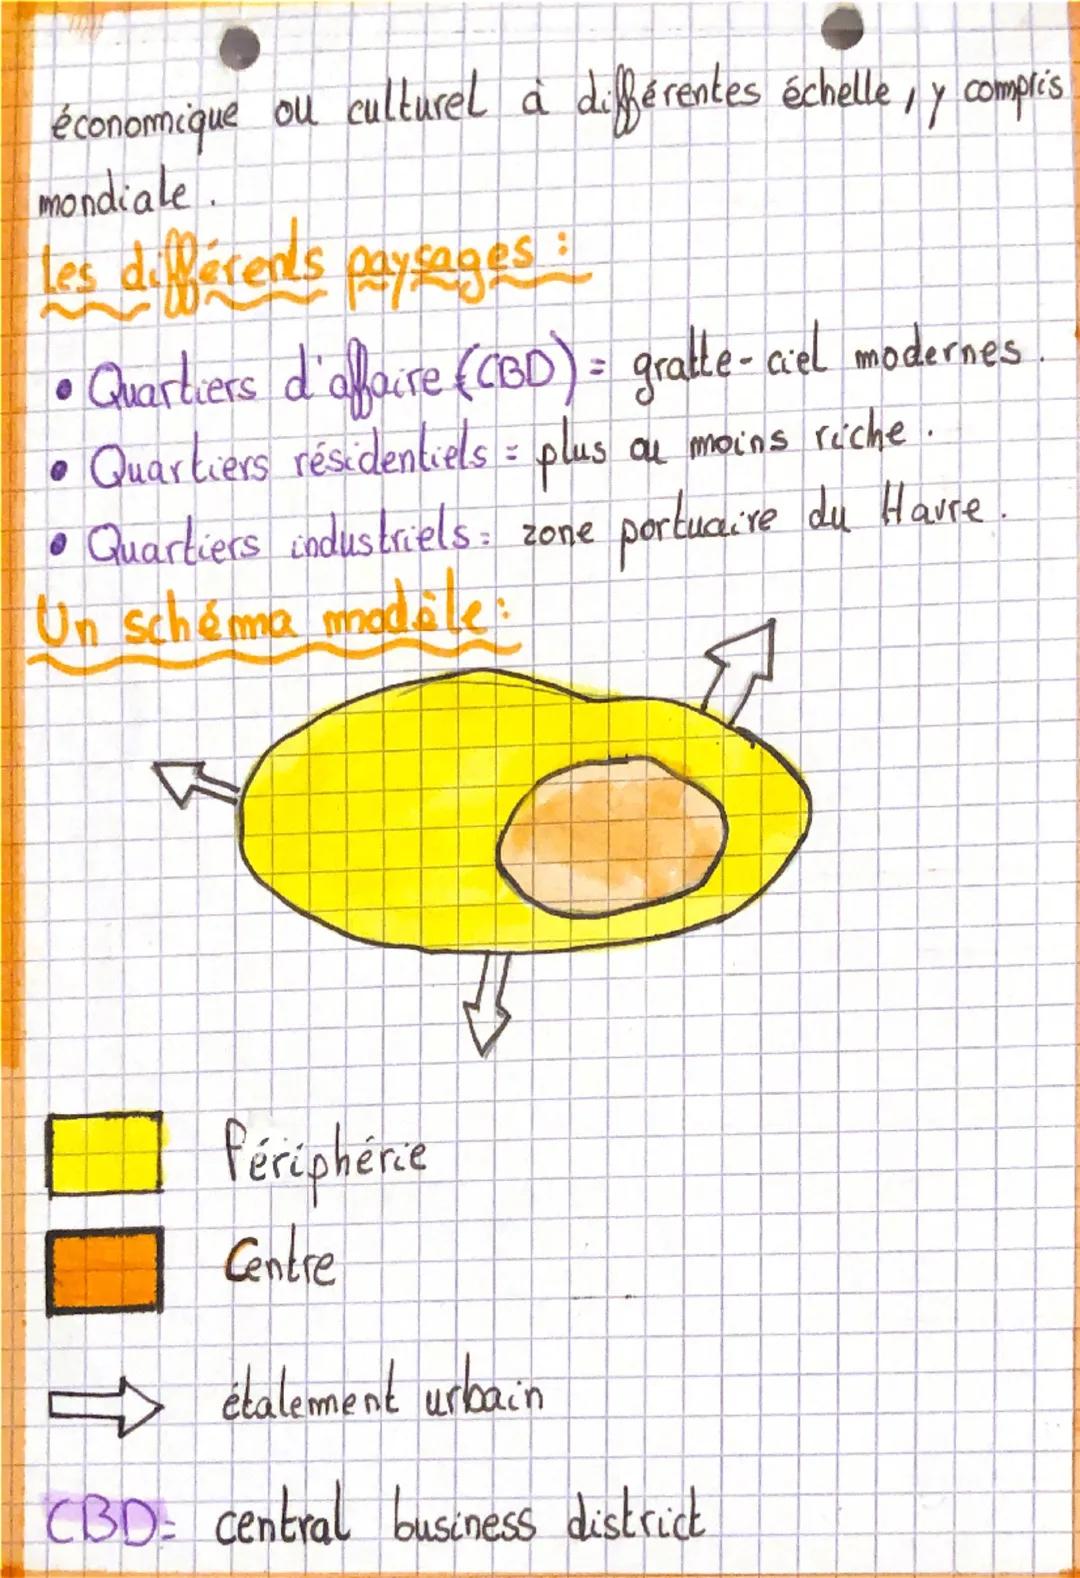 économique ou culturel à différentes échelle, y compris
mondiale.
Les différents paysages :
• Quartiers d'affaire (CBD) = gratte-ciel modernes.
• Quartiers résidentiels = plus ou moins riche.
• Quartiers industriels = zone portuaire du Havre.
Un schéma modèle :
Périphérie
Centre
étalement urbain
CBD = central business district